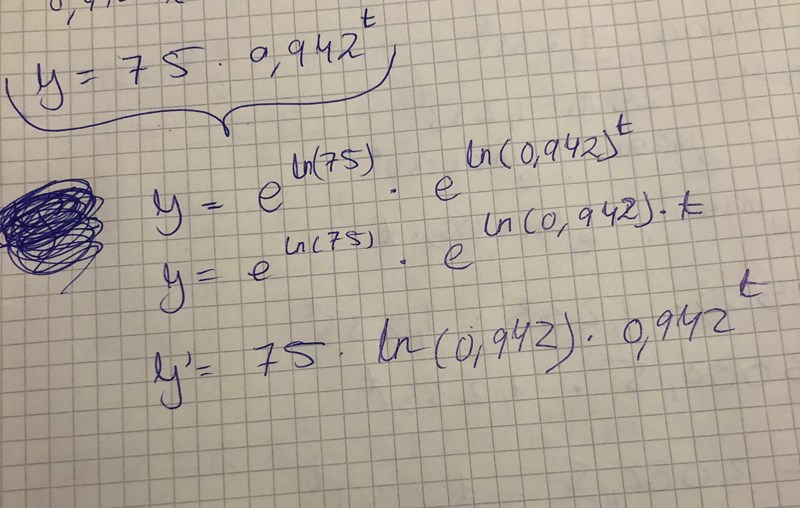 y = 75 · 0,942^t
y = e^ln(75) · e^ln(0,942)^t
y = e^ln(75) · e^ln(0,942)·t
y' = 75 · ln(0,942) · 0,942^t